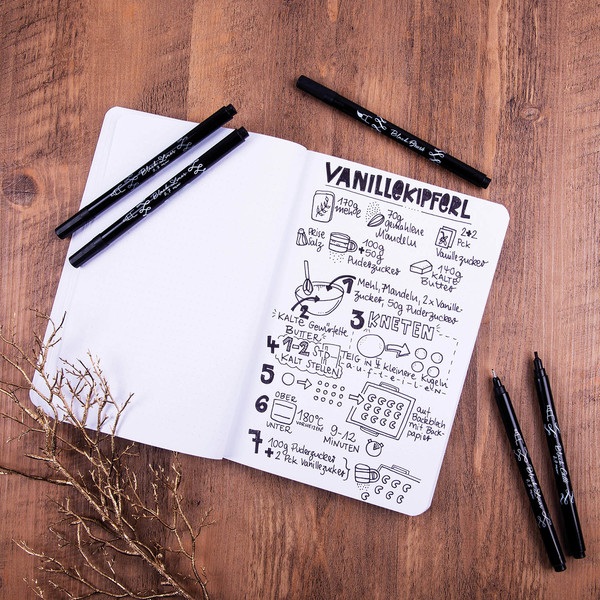 VANILLEKIPFERL
170g mehle
70g gemahlene Mandeln
2+2 Pck Vanillezucker
Prise Salz
100g + 50g Puderzucker
140g KALTE Butter
1 Mehl, Mandeln, 2x Vanille-
zucker, 50g Puderzucker
2 KALTE Gewürfelte
BUTTER
3 KNETEN
TEIG IN 4 kleinere Kugeln
-a-u-f-t-e-i-l-e-N-
4 1-2 STD
KALT STELLEN
5
auf
Backblech
mit Back-
papier
6 OBER
UNTER
180°C
VORHEIZEN
9-12
MINUTEN
7 100g Puderzucker
+ 2 Pck Vanillezucker
Black Liner
Black Liner
Black Liner